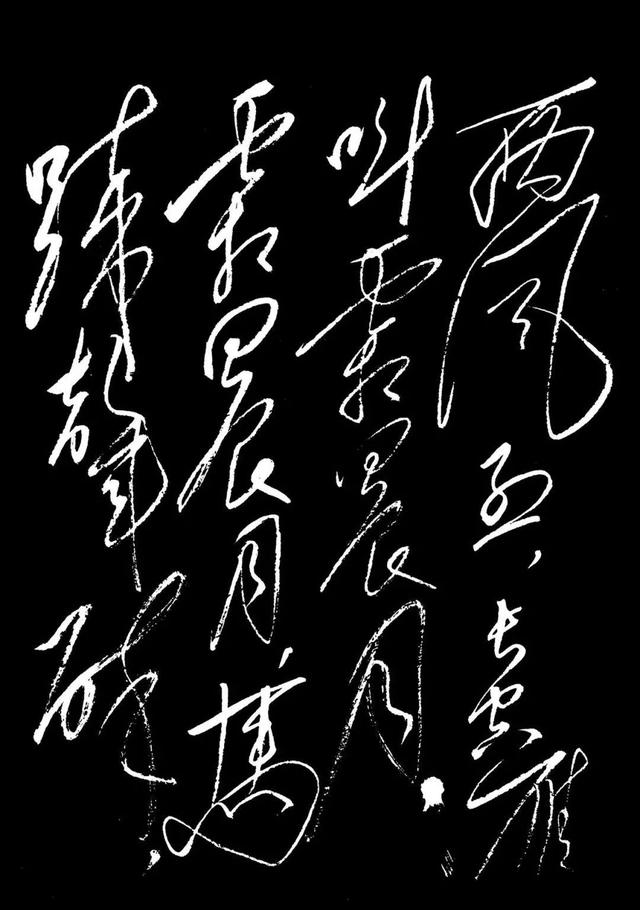 西风烈,长空雁
叫霜晨月。
霜晨月,马
蹄聲碎,